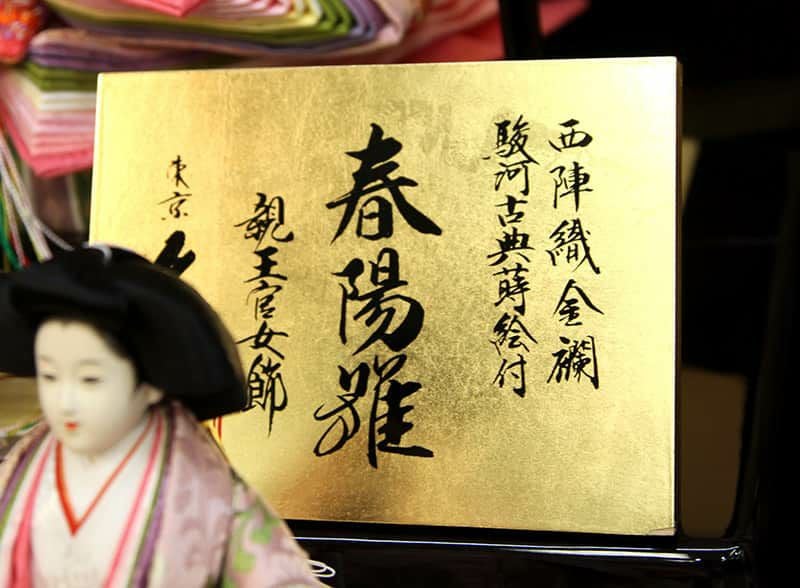 西陣織金襴
駿河古典蒔絵付
春陽雛
親王官女飾
東京